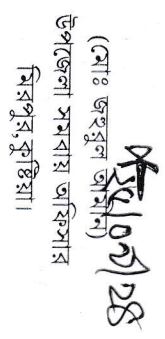 (মোঃ জহুরুল আমান)
উপজেলা সমবায় অফিসার
মিরপুর, কুষ্টিয়া।